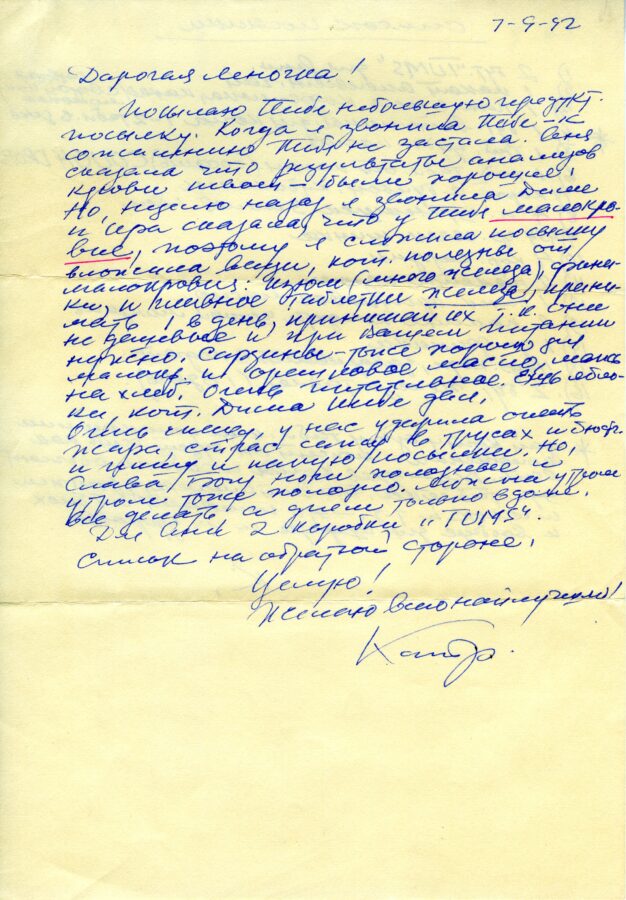 7-9-92
Дарогая Леночка!
Посылаю Тибе небольшую продукт.
посылку. Когда я звонила Тебе – к
сожалению Тибя не застала. Сеня
сказала что результаты анализов
крови твоей – были хорошие.
Но, неделю назад я звонила Диме
и Ира сказала, что у Тибя малокро-
вие, поэтому я сложила посылку
вложила вещи, кот. полезны от
малокровия: изюм (много железа), фини-
ки, и главное таблетки железа, прини-
мать 1 в день, принимай их т.к. они
не дешевые и при Вашем питании
нужно. Сардины – тоже хорошо для
малокр. и ореховое масло, мажь
на хлеб. Очень питательное. Ешь ябло-
ки, кот. Дима тибе дал.
Очень спешу, у нас ударила опять
жара, сижу в трусах и бюстг.
и пишу и пакую посылки. Но,
Слава Богу ночи холоднее и
утром тоже холодно. Можно утром
все делать а днем только вдоме.
Для Ани 2 коробки „TUMS“.
Список на обратной стороне.
Целую!
Желаю всего найлучшего!